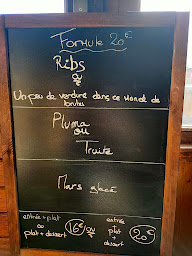 Formule 20€
Ribs
ou
Un peu de verdure dans ce monde de
brutes
Pluma
ou
Truite
Mars glacé
entrée + plat
ou
plat + dessert
16€
ou
entrée
plat
dessert
20€